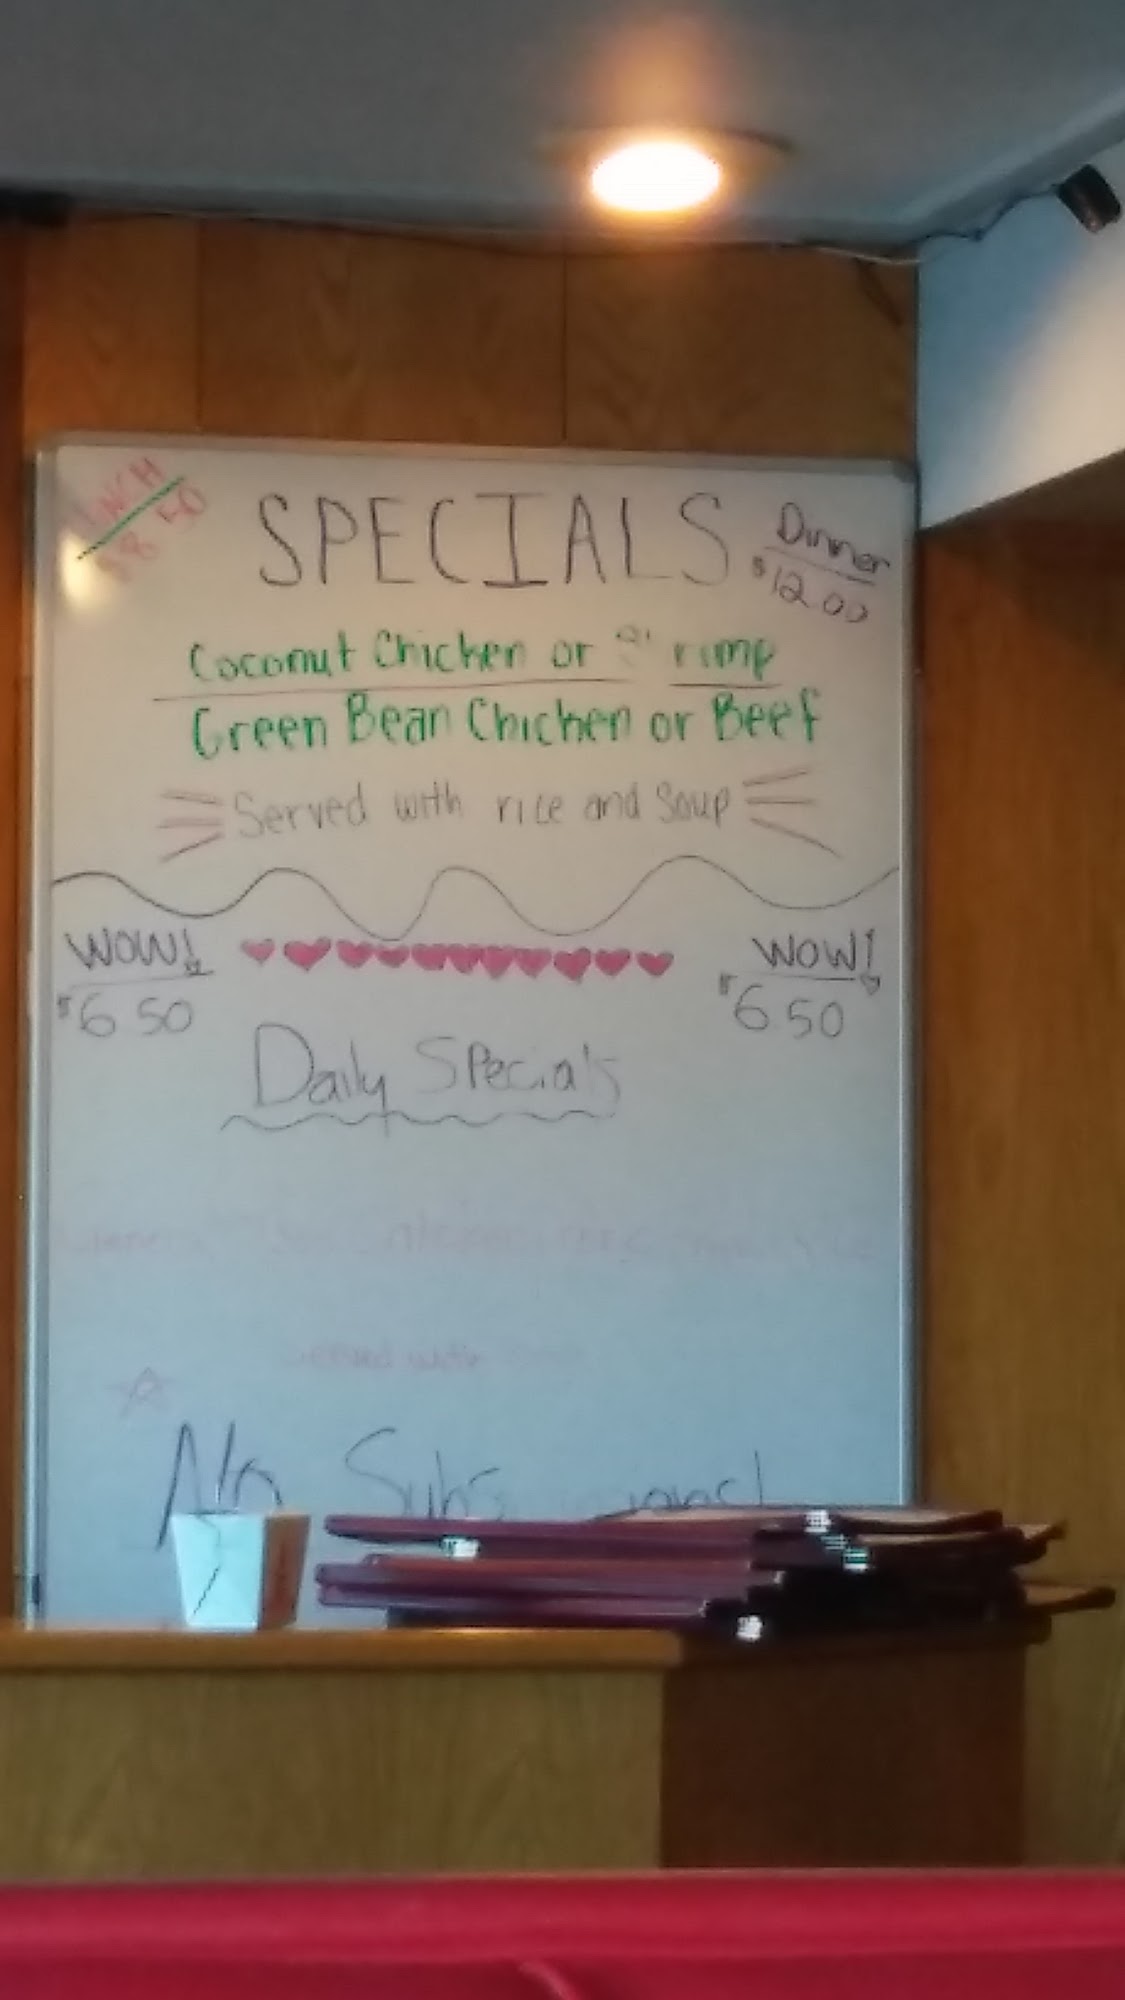 LUNCH
$8.50
SPECIALS
Dinner
$12.00
Coconut Chicken or
Green Bean Chicken or Beef
Served with rice and Soup
WOW!
$6.50
WOW!
$6.50
Daily Specials
No